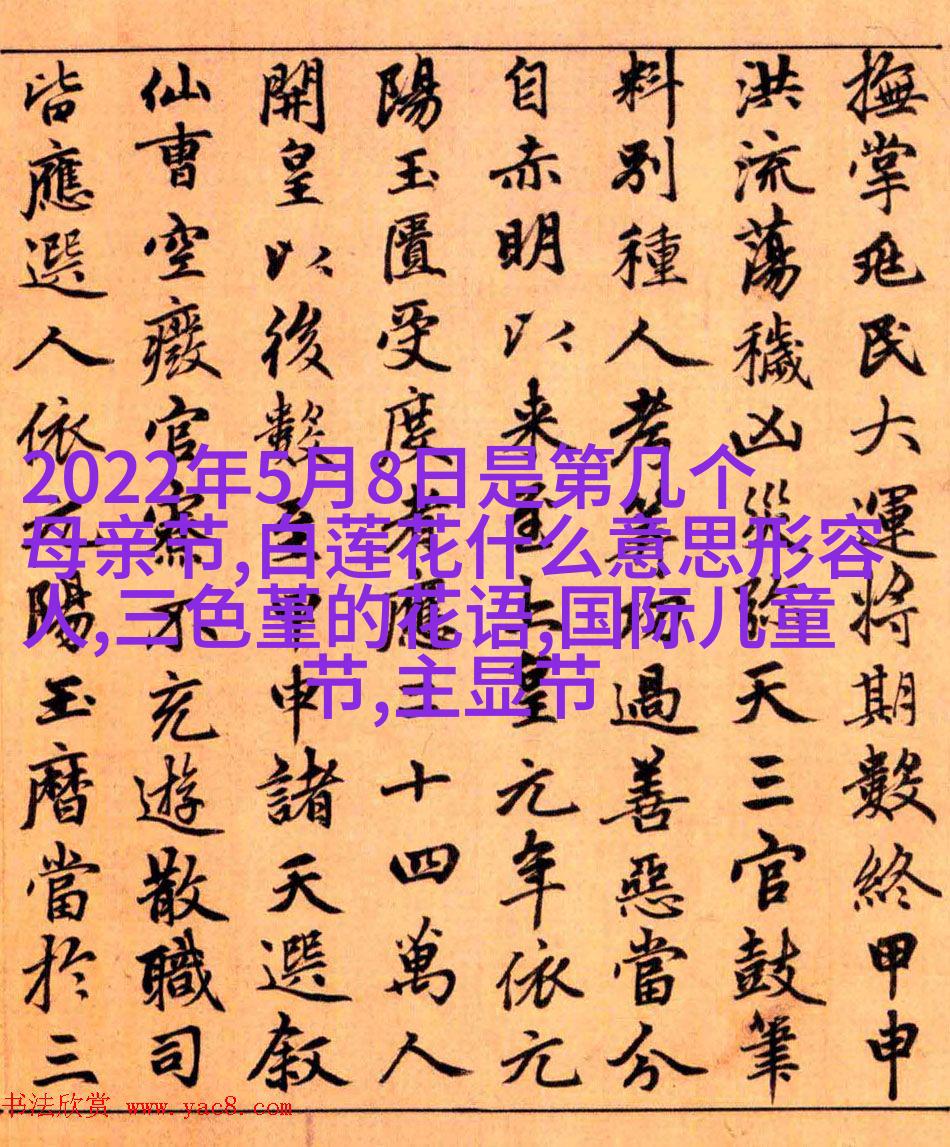 撫掌兆民大運將期數終甲申
洪流蕩穢凶災弥天三官鼓筆
料別種人考筭功過善惡當分
自赤明以来至上皇元年依元
陽玉匱受度者應三十四萬人
開皇以後數至甲申諸天選叙
仙曹空癈官寮不充遊散職司
皆應選人依元陽玉曆當於三
2022年5月8日是第几个
母亲节,白莲花什么意思形容
人,三色堇的花语,国际儿童
节,主显节
书法欣赏 www.yac8.com